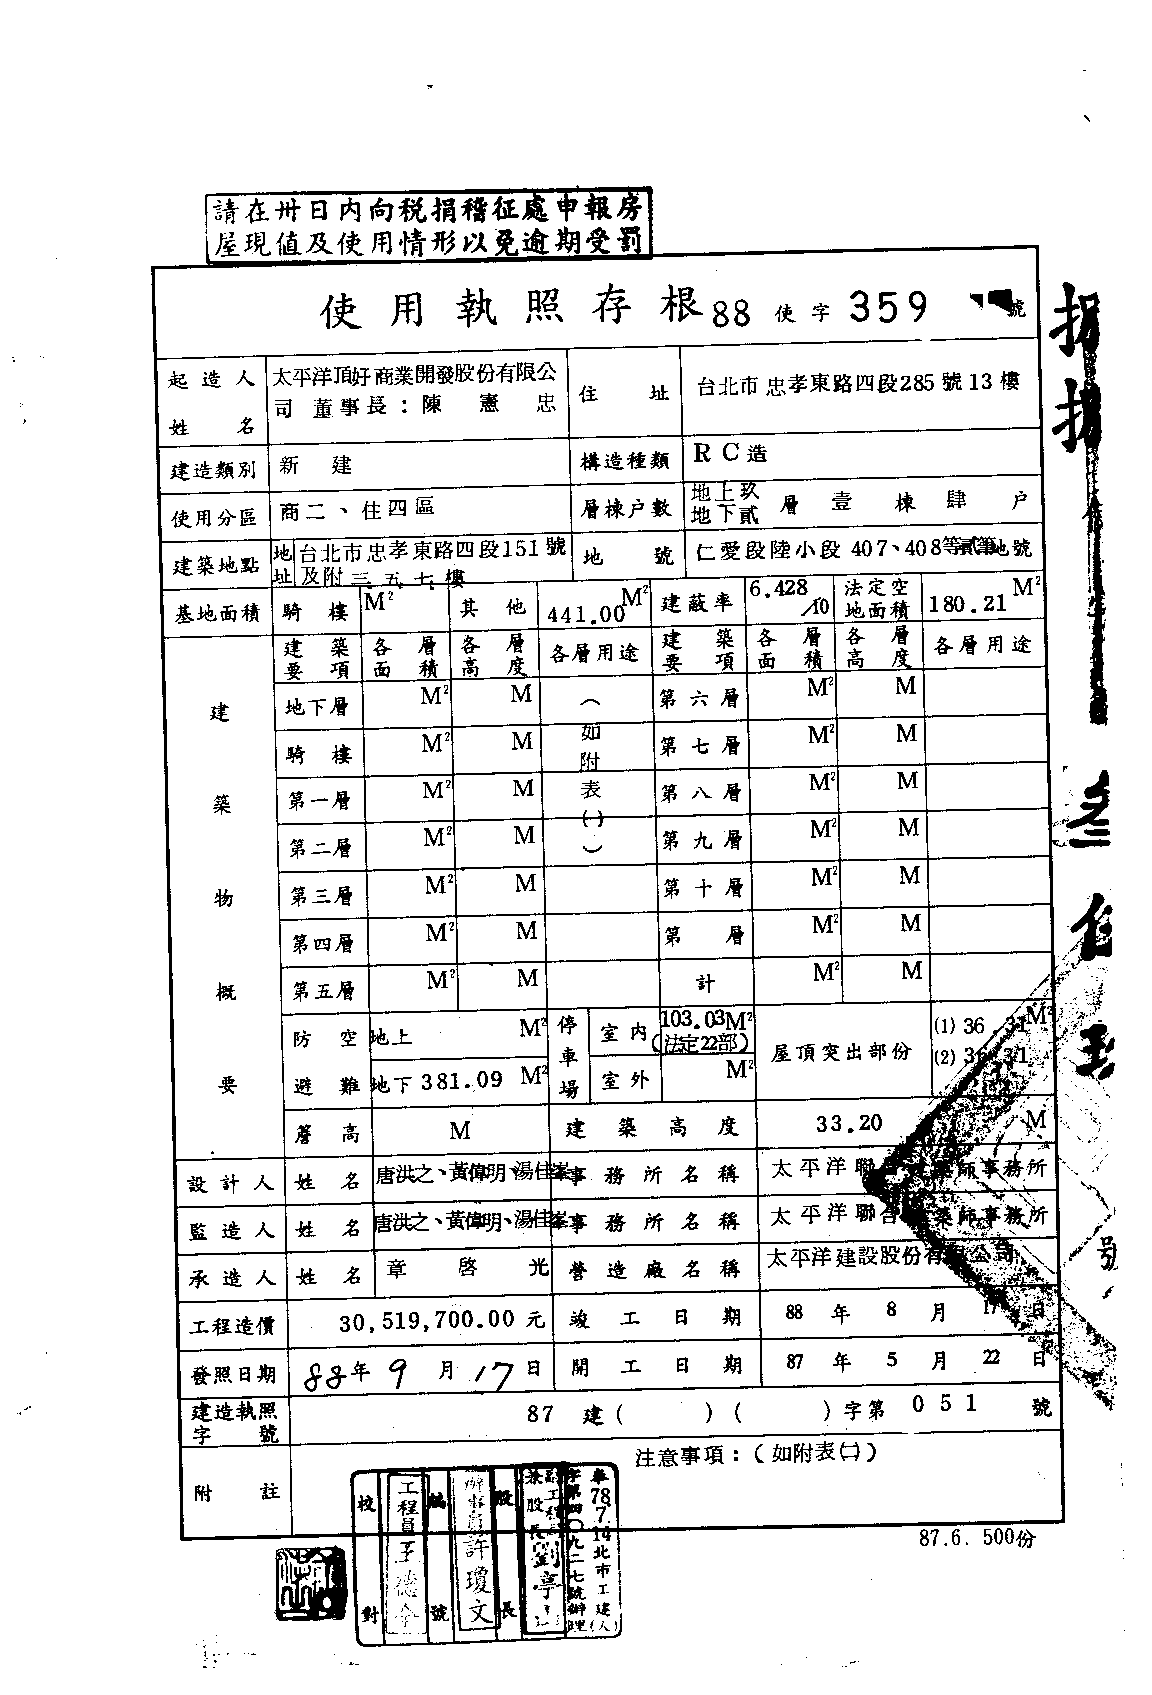 請在卅日內向稅捐稽征處申報房
屋現值及使用情形以免逾期受罰
使用執照存根 88 使字 359 號
起造人姓名 太平洋頂好商業開發股份有限公司 董事長：陳憲忠 住址 台北市忠孝東路四段285號13樓
建造類別 新建 構造種類 RC造
使用分區 商二、住四區 層棟戶數 地上玖 地下貳 層 壹 棟 肆 戶
建築地點 地址 台北市忠孝東路四段151號及附三.五.七.樓 地號 仁愛段陸小段 407、408等貳筆地號
基地面積 騎樓 M² 其他 441.00 M² 建蔽率 6.428/10 法定空地面積 180.21 M²
建築物概要
建築要項 各層面積 各層高度 各層用途 建築要項 各層面積 各層高度 各層用途
地下層 M² M (如附表(一)) 第六層 M² M
騎樓 M² M 第七層 M² M
第一層 M² M 第八層 M² M
第二層 M² M 第九層 M² M
第三層 M² M 第十層 M² M
第四層 M² M 第 層 M² M
第五層 M² M 計 M² M
防空避難 地上 M² 停車場 室內 103.03M² (法定22部) 屋頂突出部份 (1) 36.31M²
地下 381.09 M² 室外 M² (2) 36.31
簷高 M 建築高度 33.20 M
設計人 姓名 唐洪之、黃偉明、湯佳峯 事務所名稱 太平洋聯合建築師事務所
監造人 姓名 唐洪之、黃偉明、湯佳峯 事務所名稱 太平洋聯合建築師事務所
承造人 姓名 章啓光 營造廠名稱 太平洋建設股份有限公司
工程造價 30,519,700.00 元 竣工日期 88 年 8 月 17 日
發照日期 88 年 9 月 17 日 開工日期 87 年 5 月 22 日
建造執照字號 87 建 ( ) ( ) 字第 051 號
附註 注意事項：(如附表(二))
87.6. 500份
校對
工程員
號
辦事員許瓊文
股長
兼股長劉亭
奉78.7.14北市工建(人)
字第四〇九二七號辦理
號